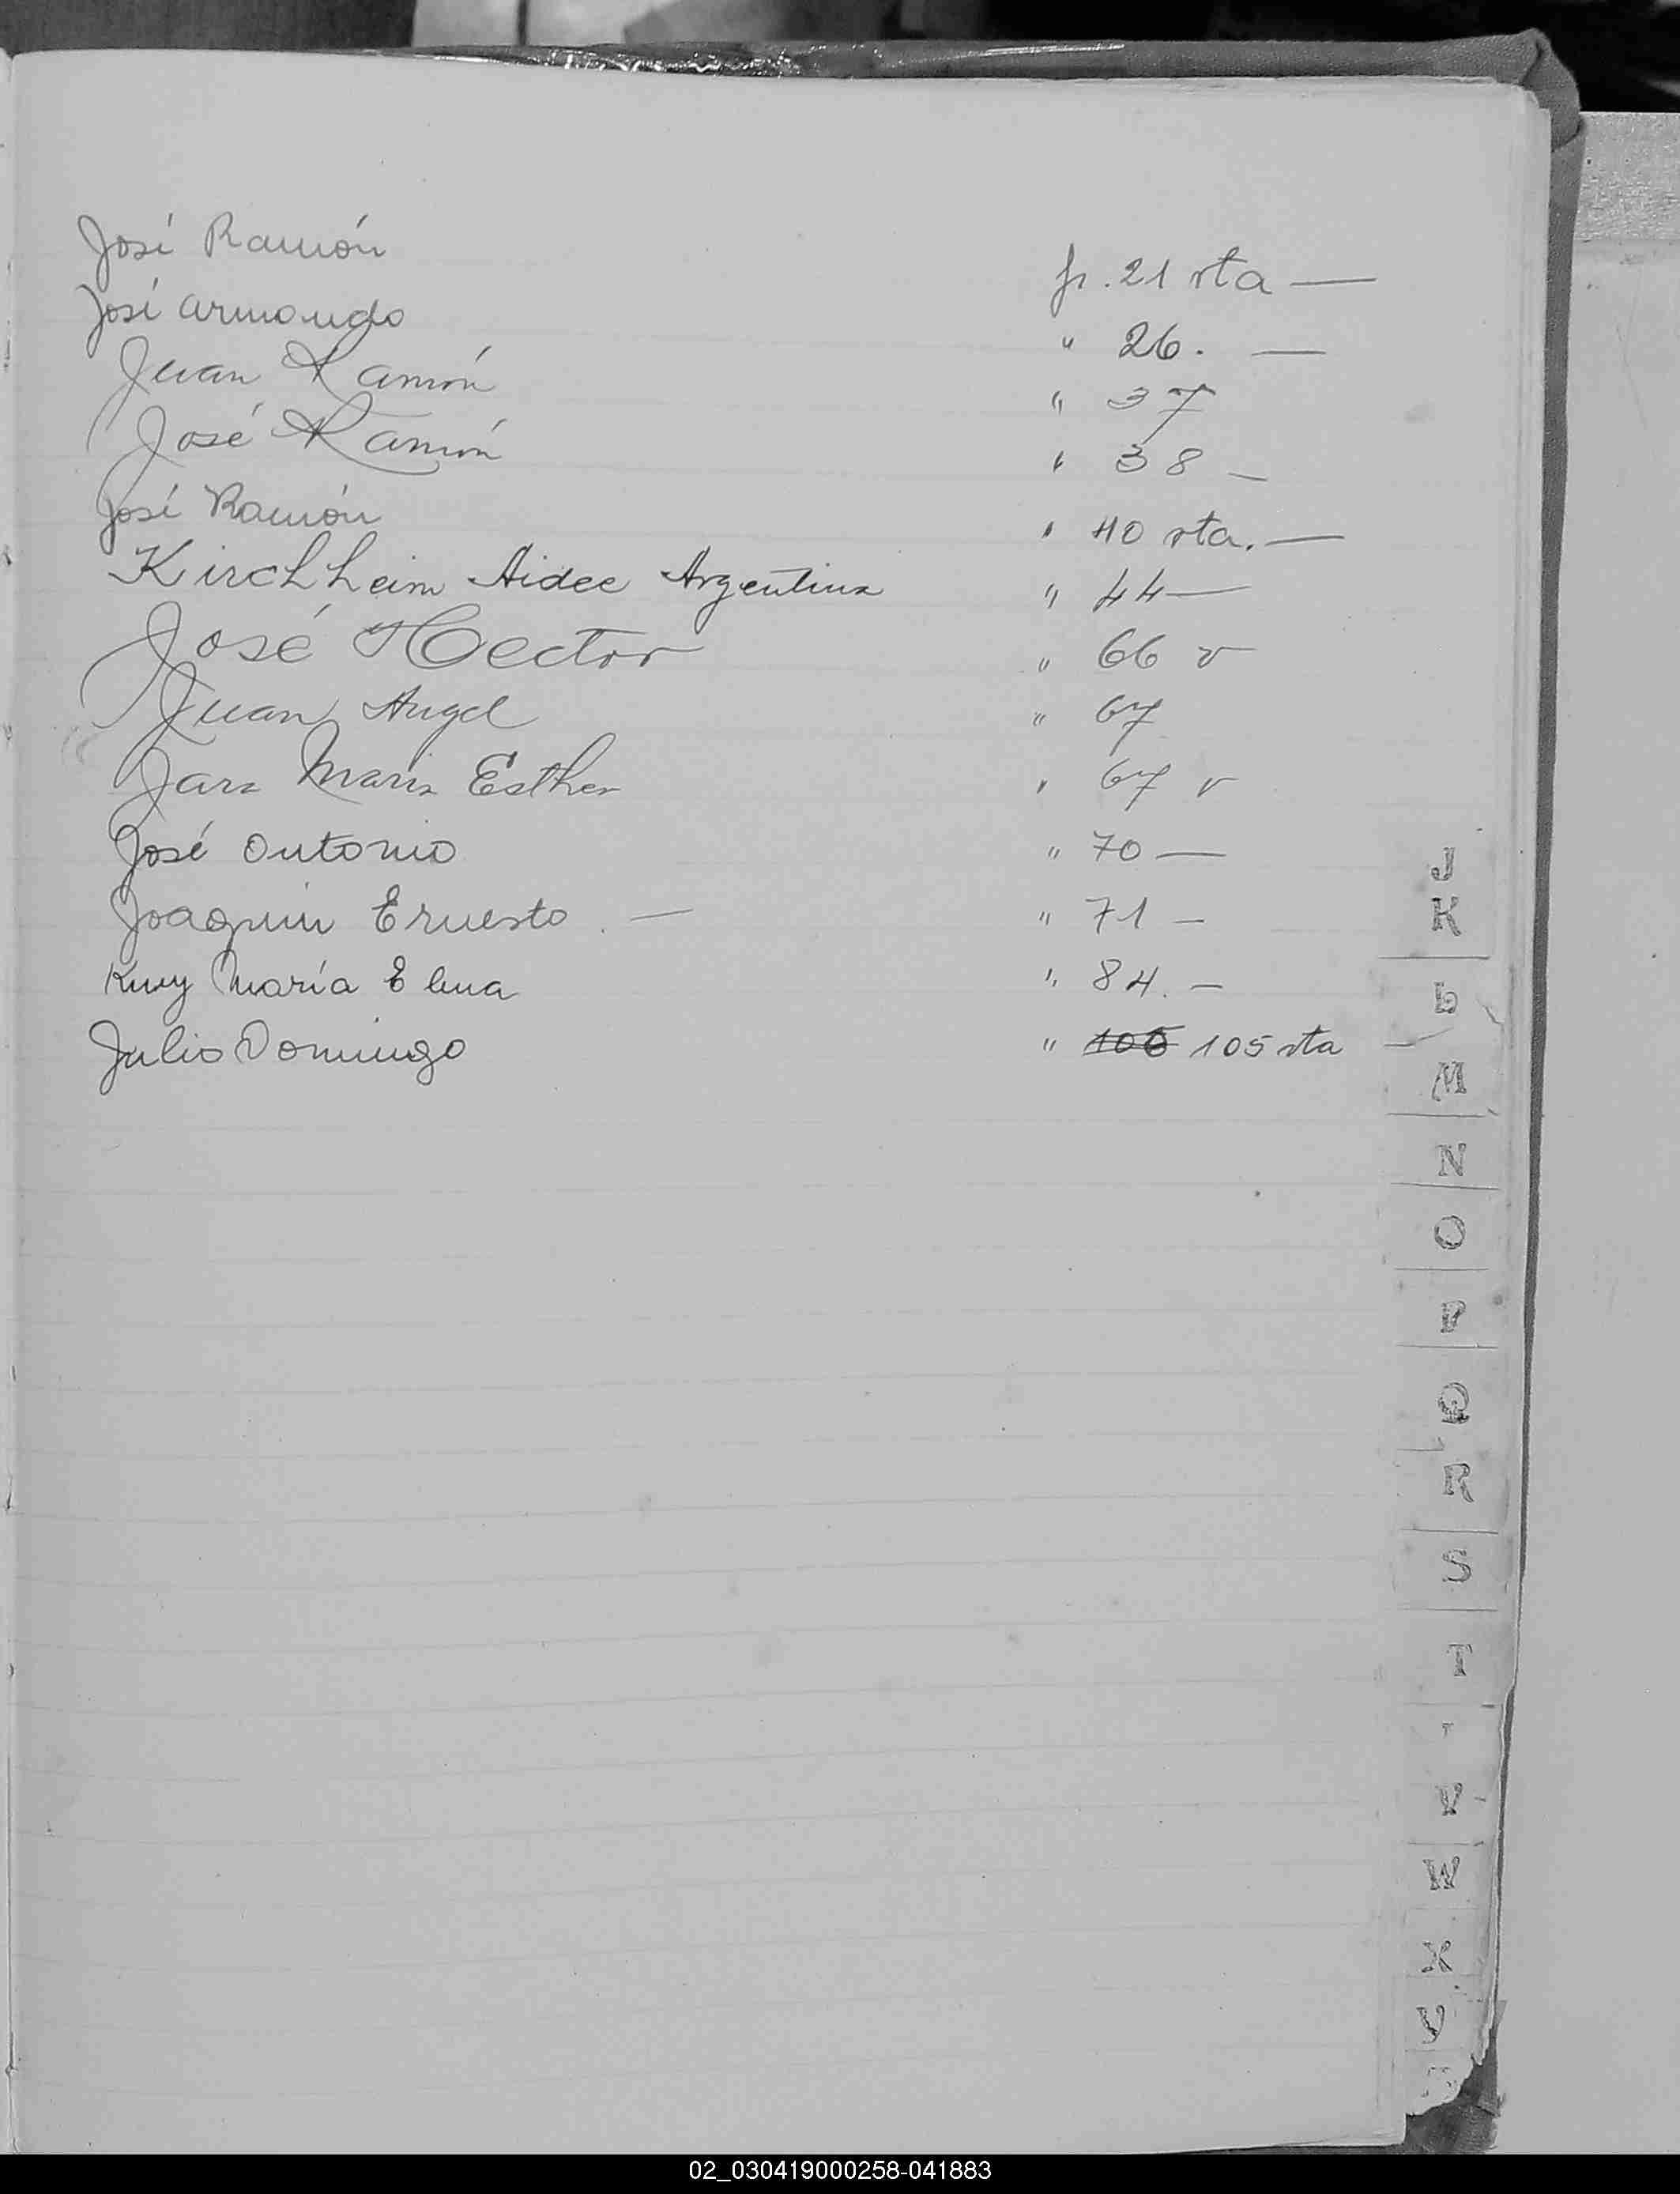 José Ramón fr. 21 vta —
José Armando " 26. —
Juan Ramón " 37
José Ramón " 38 —
José Ramón " 40 vta. —
Kirchheim Aidee Argentina " 44 —
José Hector " 66 v
Juan Angel " 67
Jara Maria Esther " 67 v
José Antonio " 70 —
Joaquin Ernesto . — " 71 —
María Elena " 84. —
Julio Domingo " 106 105 vta
J
K
L
M
N
O
P
Q
R
S
T
V
W
X
02_030419000258-041883